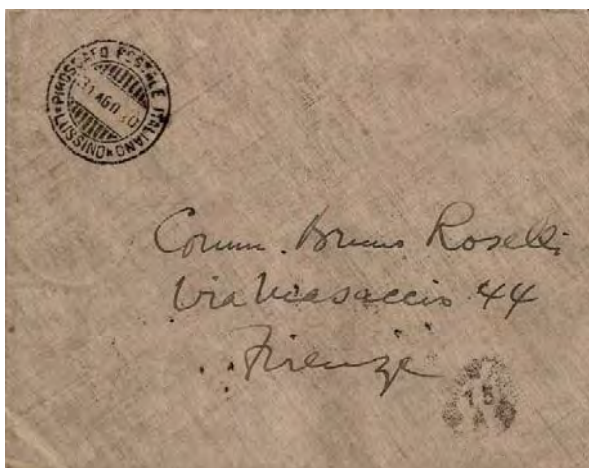 PIROSCAFO POSTALE ITALIANO
*LUSSINO*
31 AGO 30
Comm. Bruno Roselli
Via Masaccio 44
Firenze
15